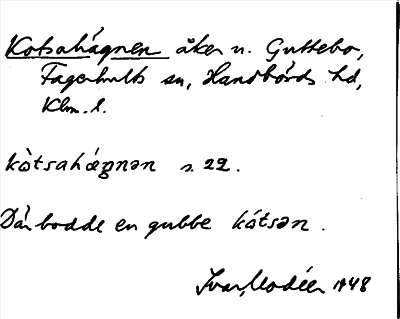 Kotsahägnen åker n. Guttebo,
Fagerhults sn, Handbörds hd,
Klm. l.
kòtsahæ̀gnən s. 22.
Där bodde en gubbe kótsən.
Ivar Modéer 1948